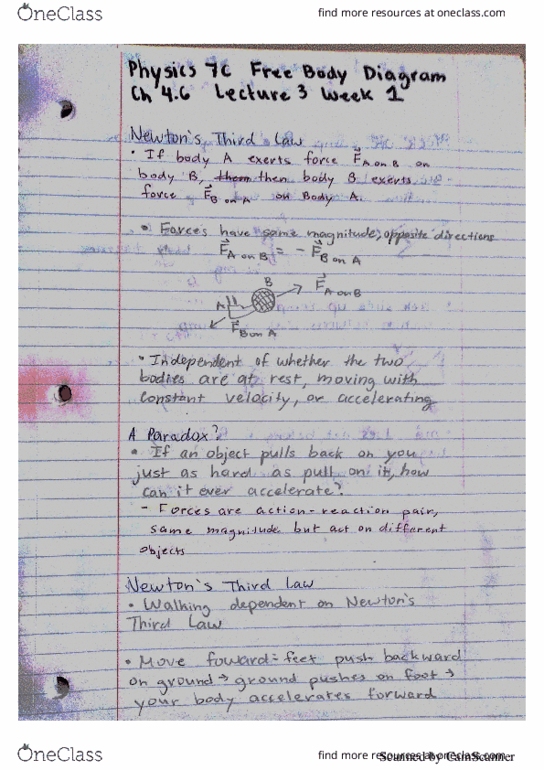 OneClass
find more resources at oneclass.com
Physics 7C Free Body Diagram
Ch 4.6 Lecture 3 Week 1
Newton's Third Law
• If body A exerts force F⃗ A on B on
body B, them then body B exerts
force F⃗ B on A on Body A.
• Forces have same magnitude, opposite directions
F⃗ A on B = - F⃗ B on A
B
F⃗ A on B
A
F⃗ B on A
• Independent of whether the two
bodies are at rest, moving with
constant velocity, or accelerating
A Paradox?
• If an object pulls back on you
just as hard as pull on it, how
can it ever accelerate?
- Forces are action-reaction pair,
same magnitude but act on different
objects
Newton's Third Law
• Walking dependent on Newton's
Third Law
• Move foward = feet push backward
on ground → ground pushes on foot →
your body accelerates forward
OneClass
find more resources at oneclass.com
Scanned by CamScanner